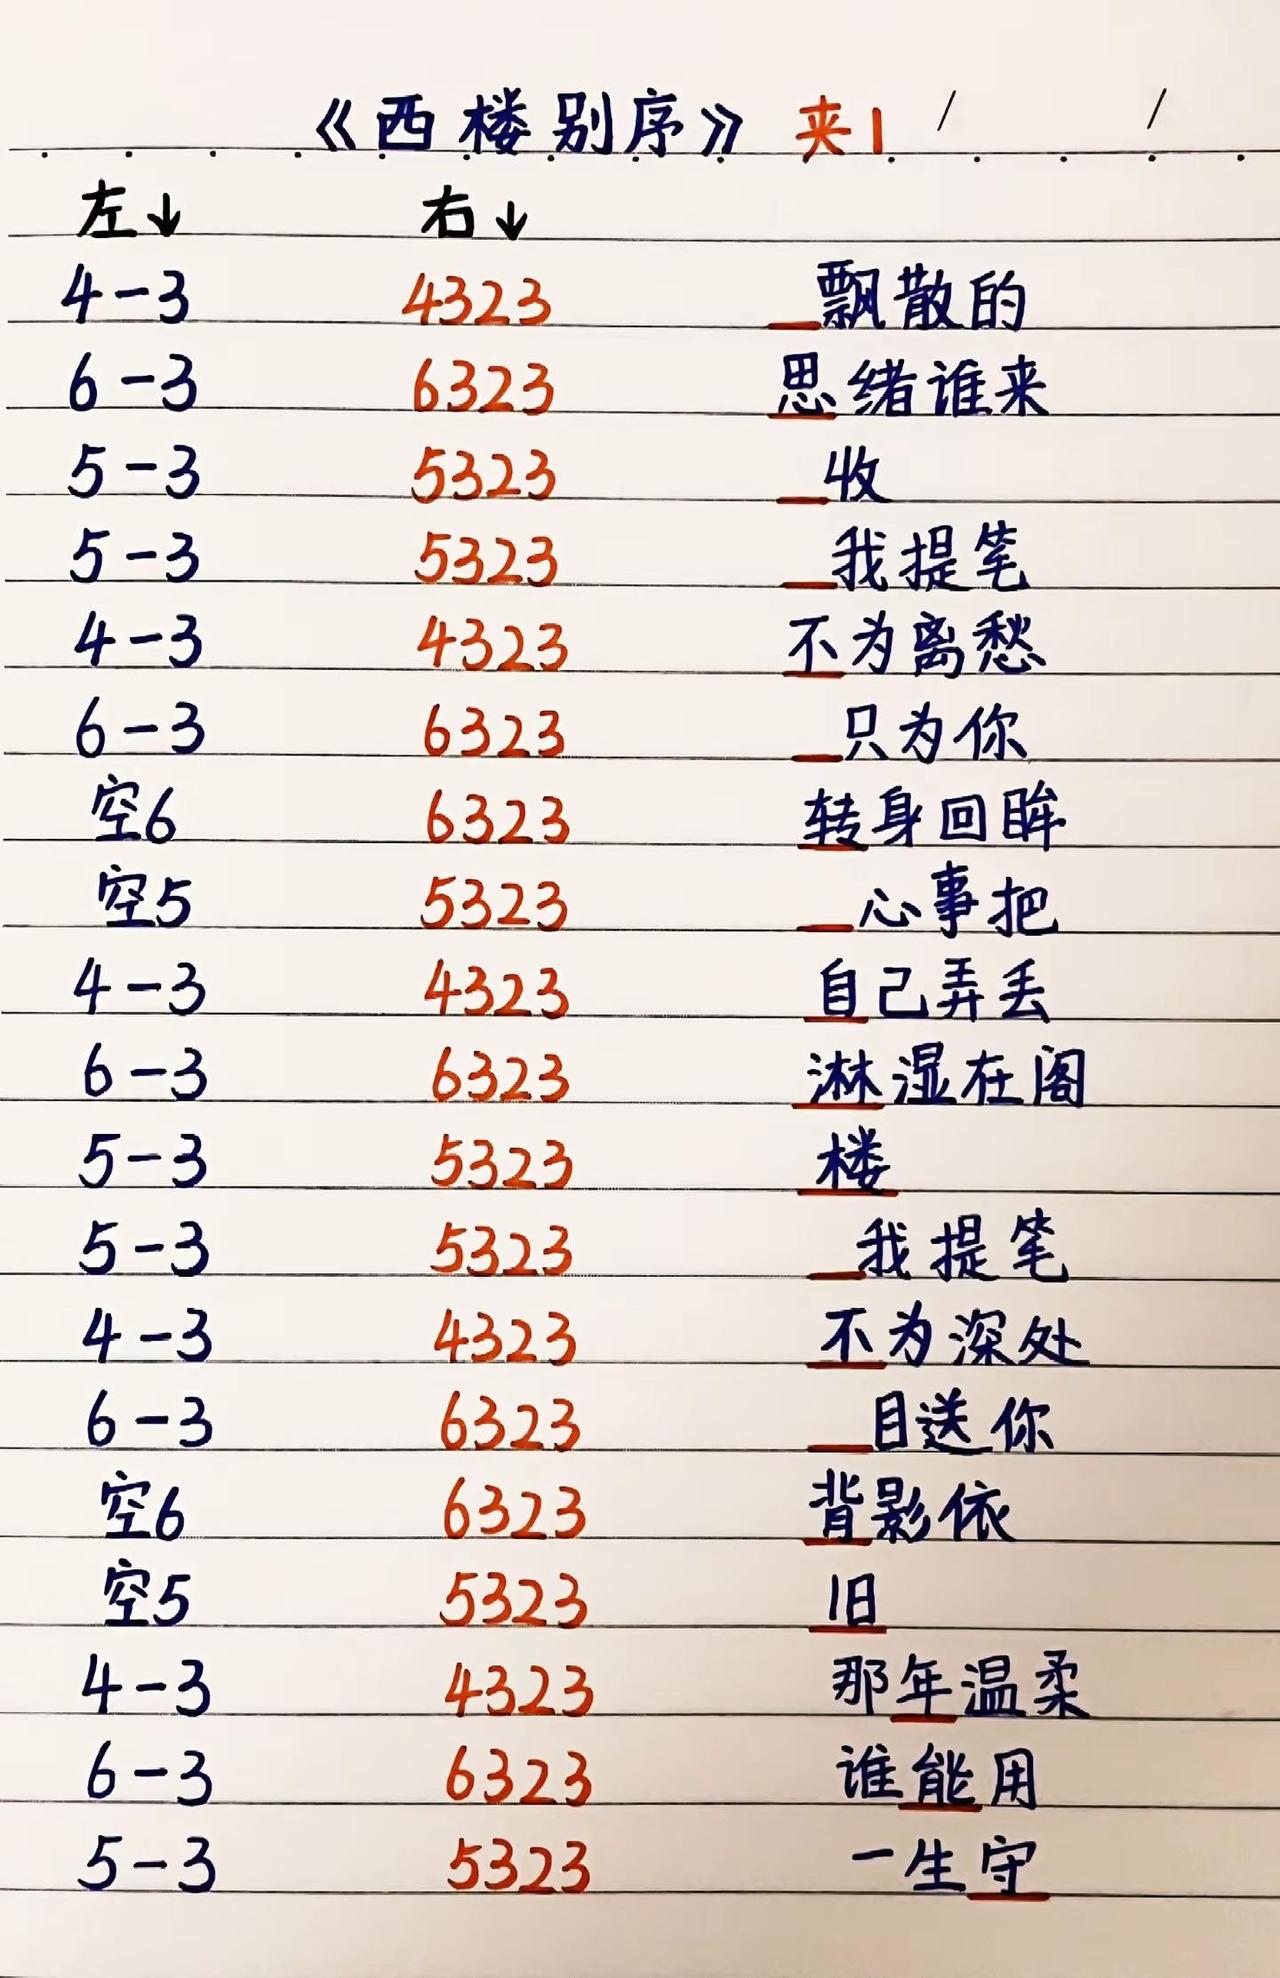 《西楼别序》 夹1
左↓ 右↓
4-3 4323 _飘散的
6-3 6323 思绪谁来
5-3 5323 _收
5-3 5323 _我提笔
4-3 4323 不为离愁
6-3 6323 _只为你
空6 6323 转身回眸
空5 5323 _心事把
4-3 4323 自己弄丢
6-3 6323 淋湿在阁
5-3 5323 楼
5-3 5323 _我提笔
4-3 4323 不为深处
6-3 6323 _目送你
空6 6323 背影依
空5 5323 旧
4-3 4323 那年温柔
6-3 6323 谁能用
5-3 5323 一生守